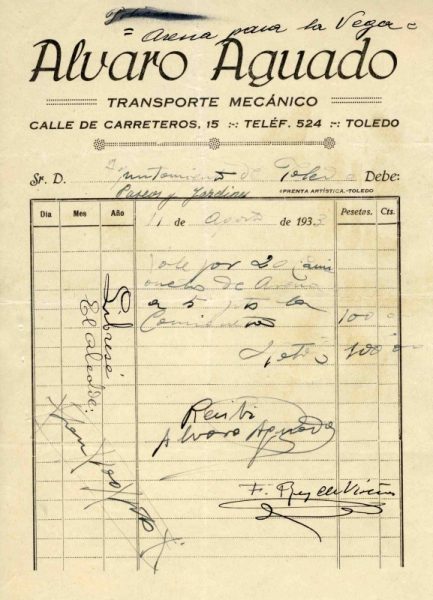 = Arena para la Vega =
Alvaro Aguado
TRANSPORTE MECÁNICO
CALLE DE CARRETEROS, 15 :-: TELÉF. 524 :-: TOLEDO
Sr. D. Ayuntamiento de Toledo Debe:
Paseos y Jardines
IPRENTA ARTÍSTICA.-TOLEDO
Dia Mes Año 11 de Agosto de 1933 Pesetas. Cts.
Vale por 20
de Arena
a 5 pts la
100
Total 100
Librese
El alcalde:
Recibí
Alvaro Aguado